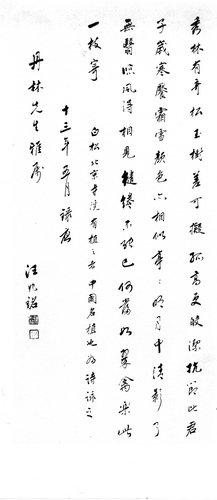 秀林有奇松玉樹差可擬孤高更皎潔抗節比君
子歲寒歷霜雪顏色亦相似亭亭明月中清影了
無翳臨風得相見繾綣不能已何當如翠禽樂此
一枝寄
白松北京寺院有植之者中國名植也為詩詠之
十三年五月
丹林先生雅屬
汪兆銘